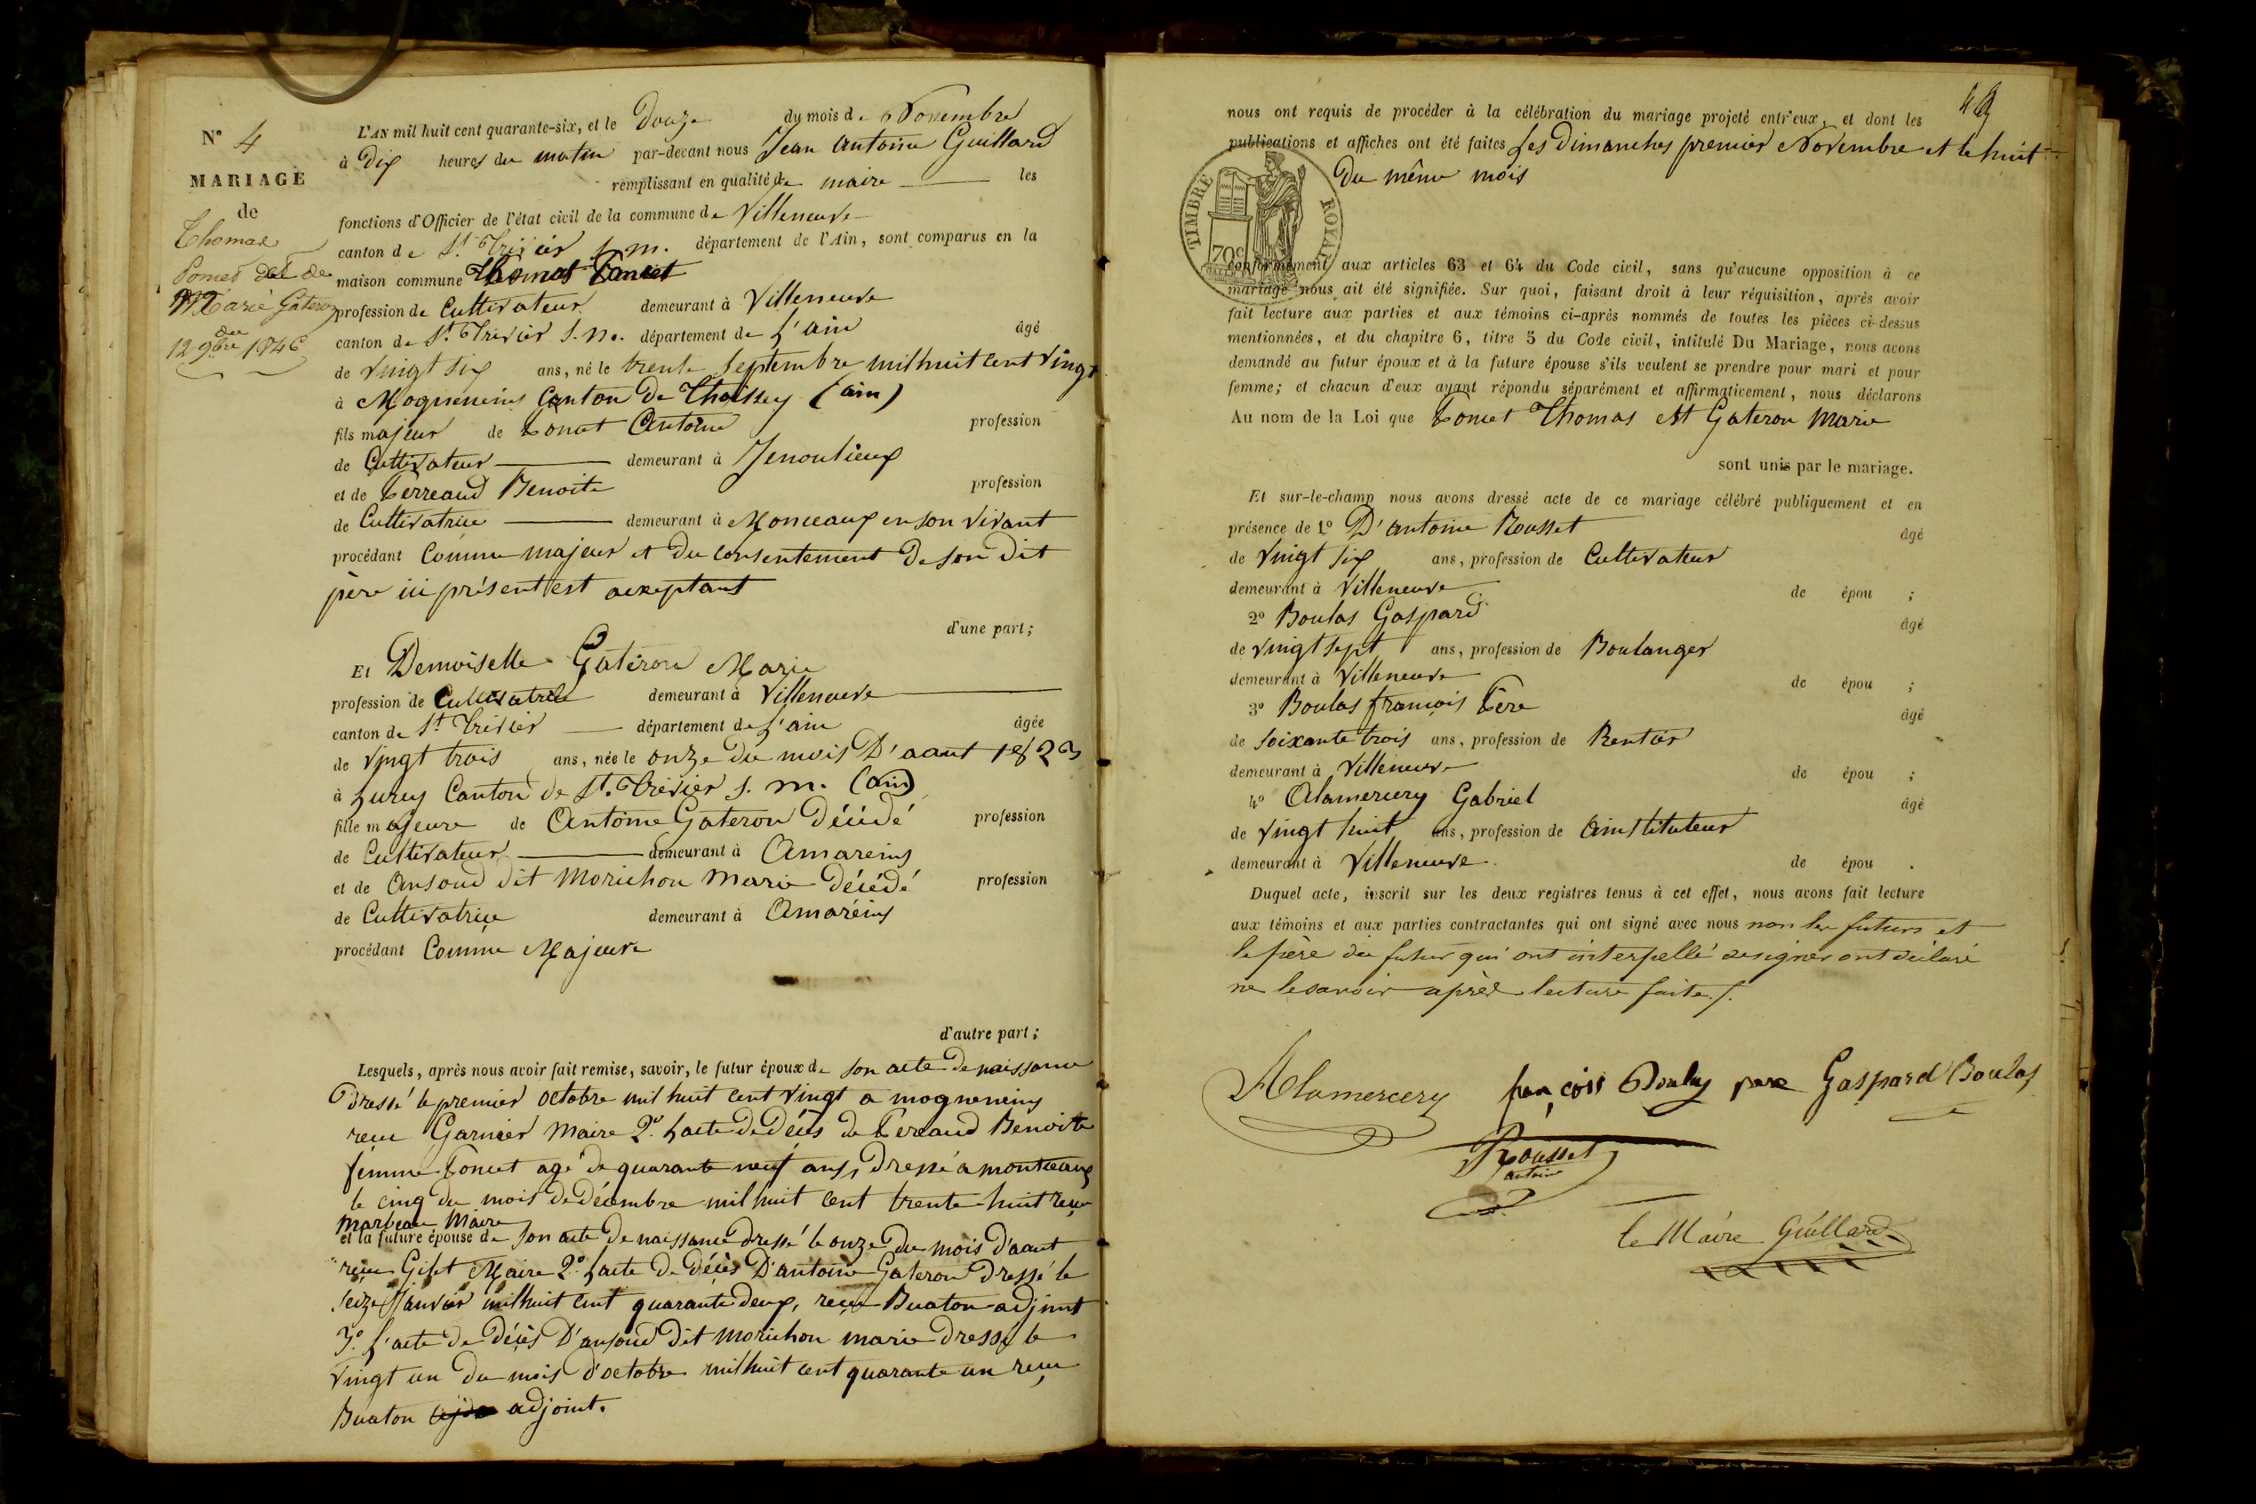 N° 4
MARIAGE
de
Thomas
Poncet et de
Marie Gateron
du
12 9bre 1846
L'AN mil huit cent quarante-six, et le Douze du mois de Novembre
à Dix heures du matin par-devant nous Jean Antoine Guillard
remplissant en qualité de maire les
fonctions d'Officier de l'état civil de la commune de Villeneuve
canton de St. Trivier s. m. département de l'Ain, sont comparus en la
maison commune Thomas Poncet
profession de Cultivateur demeurant à Villeneuve
canton de St. Trivier s. m. département de L'ain âgé
de Vingt Six ans, né le trente Septembre mil huit cent vingt
à Mogneneins Canton de Thoissey (ain)
fils majeur de Poncet Antoine profession
de Cultivateur demeurant à Jenoulieux
et de Perreaud Benoite profession
de Cultivatrice demeurant à Monceaux en son vivant
procédant Comme majeur et du consentement de son dit
père ici présent est acceptant
d'une part;
Et Demoiselle Gateron Marie
profession de Cultivatrice demeurant à Villeneuve
canton de St. Trivier département de L'ain âgée
de Vingt trois ans, née le onze du mois D'aaut 1823
à Lurcy Canton de St. Trivier s. m. (ain)
fille majeure de Antoine Gateron Décédé profession
de Cultivateur demeurant à Amareins
et de Ansoud dit Morichon Marie Décédé profession
de Cultivatrice demeurant à Amaréins
procédant Comme Majeure
d'autre part;
Lesquels, après nous avoir fait remise, savoir, le futur époux de son acte de naissance
Dressé le premier octobre mil huit cent vingt a mogneneins
reçu Garnier Maire 2° L'acte de Décès de Pereaud Benoite
femme Poncet agé de quarante neuf ans, Dressé a montceaux
le cinq du mois de Décembre mil huit cent trente huit reçu
Marbeau Maire
et la future épouse de son acte de naissance dressé le onze du mois d'aaut
reçu Gilet Maire 2° L'acte de Décès D'antoine Gateron Dressé le
seize Janvier mil huit cent quarante deux, reçu Buaton adjoint
3° L'acte de Décès D'ansoud dit morichon marie dressé le
Vingt un du mois d'octobre mil huit cent quarante un reçu
Buaton adjoint.
nous ont requis de procéder à la célébration du mariage projeté entr'eux, et dont les
publications et affiches ont été faites Les Dimanches premier Novembre et le huit
Du même mois
TIMBRE ROYAL
70c
conformément aux articles 63 et 64 du Code civil, sans qu'aucune opposition à ce
mariage nous ait été signifiée. Sur quoi, faisant droit à leur réquisition, après avoir
fait lecture aux parties et aux témoins ci-après nommés de toutes les pièces ci-dessus
mentionnées, et du chapitre 6, titre 5 du Code civil, intitulé Du Mariage, nous avons
demandé au futur époux et à la future épouse s'ils veulent se prendre pour mari et pour
femme; et chacun d'eux ayant répondu séparément et affirmativement, nous déclarons
Au nom de la Loi que Poncet Thomas et Gateron Marie
sont unis par le mariage.
Et sur-le-champ nous avons dressé acte de ce mariage célébré publiquement et en
présence de 1° D'antoine Rousset âgé
de Vingt six ans, profession de Cultivateur
demeurant à Villeneuve de épou ;
2° Boulas Gaspard âgé
de Vingt sept ans, profession de Boulanger
demeurant à Villeneuve de épou ;
3° Boulas françois Père âgé
de Soixante trois ans, profession de Rentier
demeurant à Villeneuve de épou ;
4° Alamercery Gabriel âgé
de Vingt huit ans, profession de instituteur
demeurant à Villeneuve de épou .
Duquel acte, inscrit sur les deux registres tenus à cet effet, nous avons fait lecture
aux témoins et aux parties contractantes qui ont signé avec nous non les futurs et
le père du futur qui ont interpellé de signer ont déclaré
ne le savoir après lecture faite ./.
Alamercery françois Boulas pere Gaspard Boulas
Rousset
antoine
le Maire Guillard